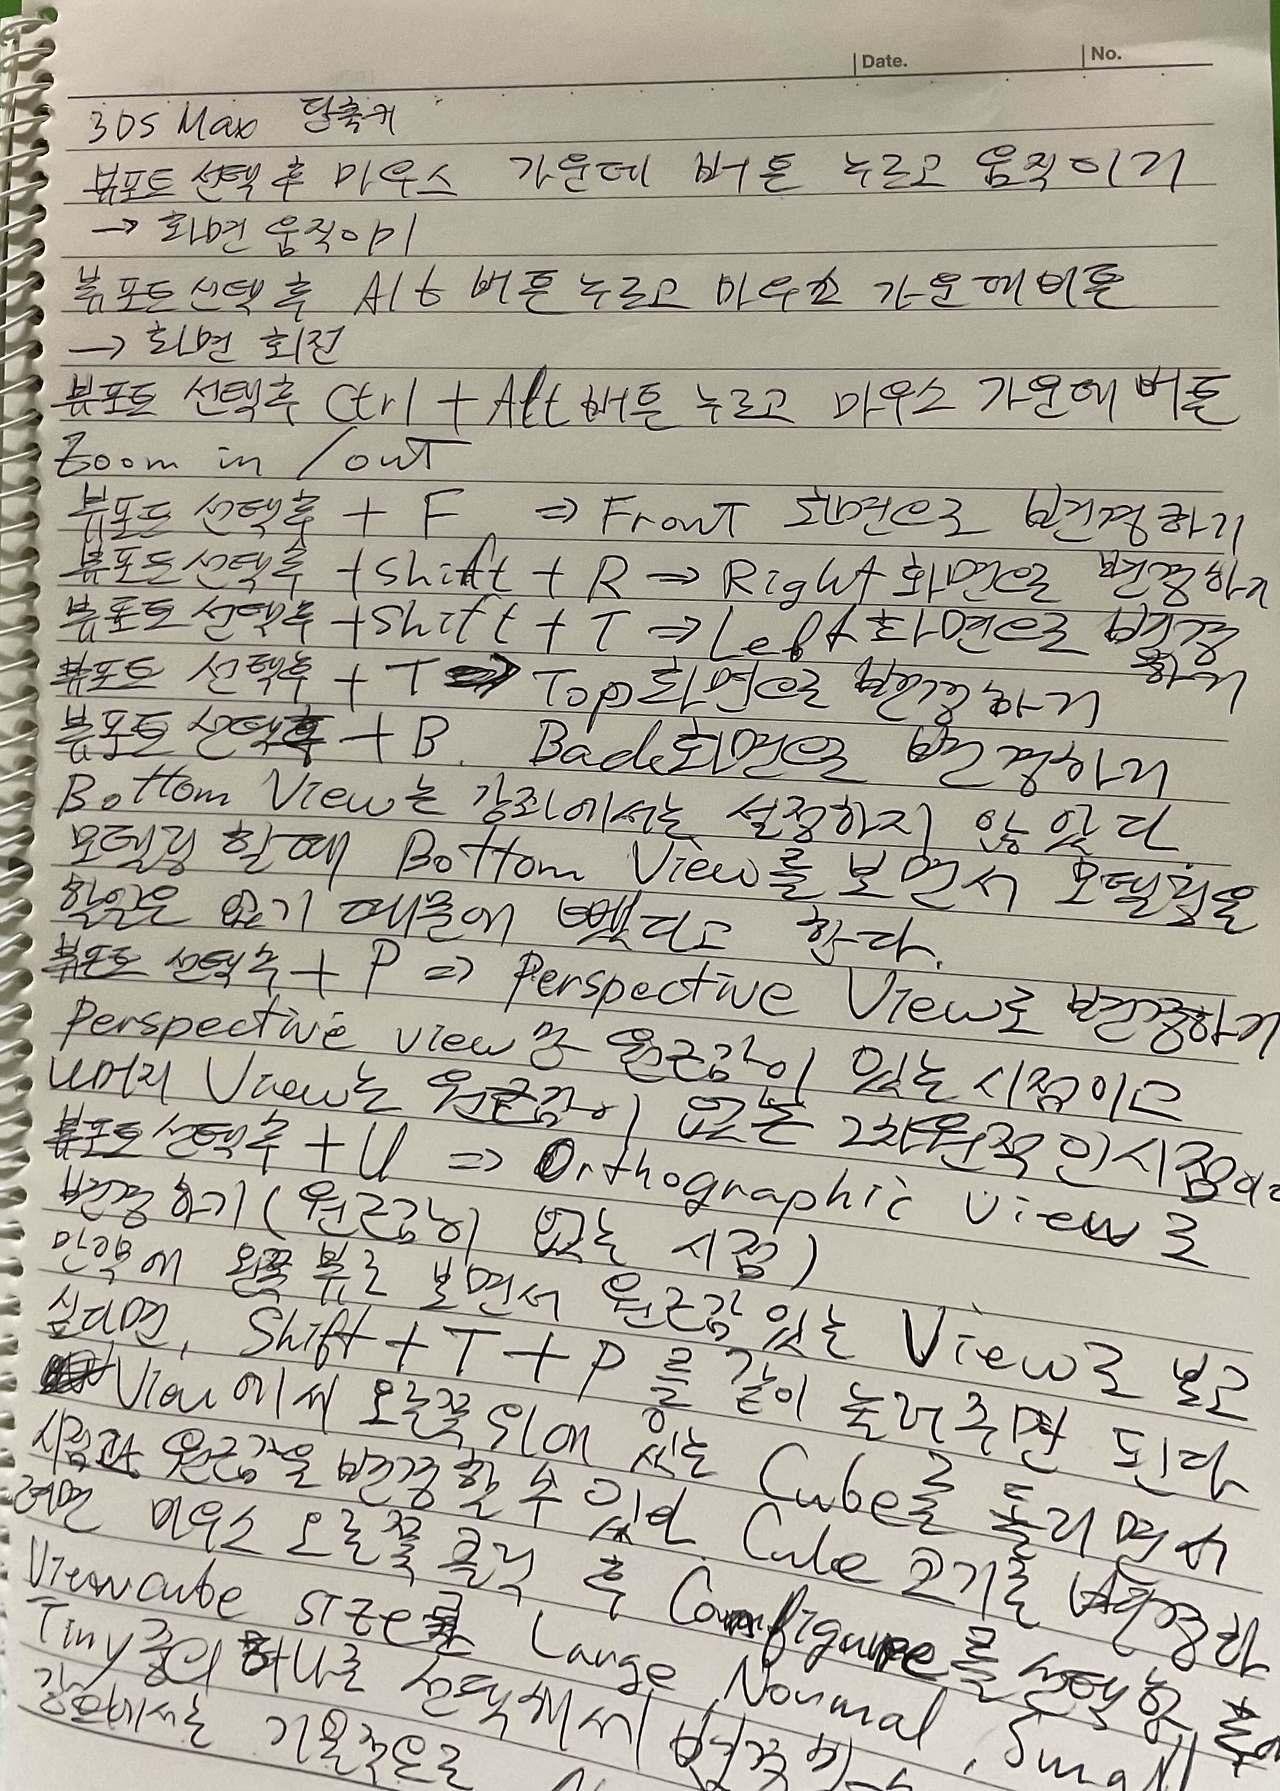 Date.
No.
3DS Max 단축키
뷰포트 선택 후 마우스 가운데 버튼 누르고 움직이기
→ 화면 움직이기
뷰포트 선택 후 Alt 버튼 누르고 마우스 가운데 버튼
→ 화면 회전
뷰포트 선택 후 Ctrl + Alt 버튼 누르고 마우스 가운데 버튼
Zoom in / out
뷰포트 선택 후 + F ⇒ Front 화면으로 변경하기
뷰포트 선택 후 + Shift + R ⇒ Right 화면으로 변경하기
뷰포트 선택 후 + Shift + T ⇒ Left 화면으로 변경
하기
뷰포트 선택 후 + T ⇒ Top 화면으로 변경하기
뷰포트 선택 후 + B. Back 화면으로 변경하기
Bottom View는 강좌에서는 설정하지 않았다
모델링 할 때 Bottom View를 보면서 모델링을
할 일은 없기 때문에 뺐다고 한다.
뷰포트 선택 후 + P ⇒ Perspective View로 변경하기
Perspective view만 원근감이 있는 시점이고
나머지 View는 원근감이 없는 2차원적인 시점이고
뷰포트 선택 후 + U ⇒ Orthographic View로
변경하기 (원근감이 없는 시점)
만약에 왼쪽 뷰로 보면서 원근감 있는 View로 보고
싶다면, Shift + T + P 를 같이 눌러주면 된다
View에서 오른쪽 위에 있는 Cube를 돌리면서
시점과 원근감을 변경할 수 있다. Cube 크기를 변경하
려면 마우스 오른쪽 클릭 후 Configure를 선택한 후에
Viewcube size를 Large, Normal, Small
Tiny 중의 하나로 선택해서
강좌에서는 기본적으로